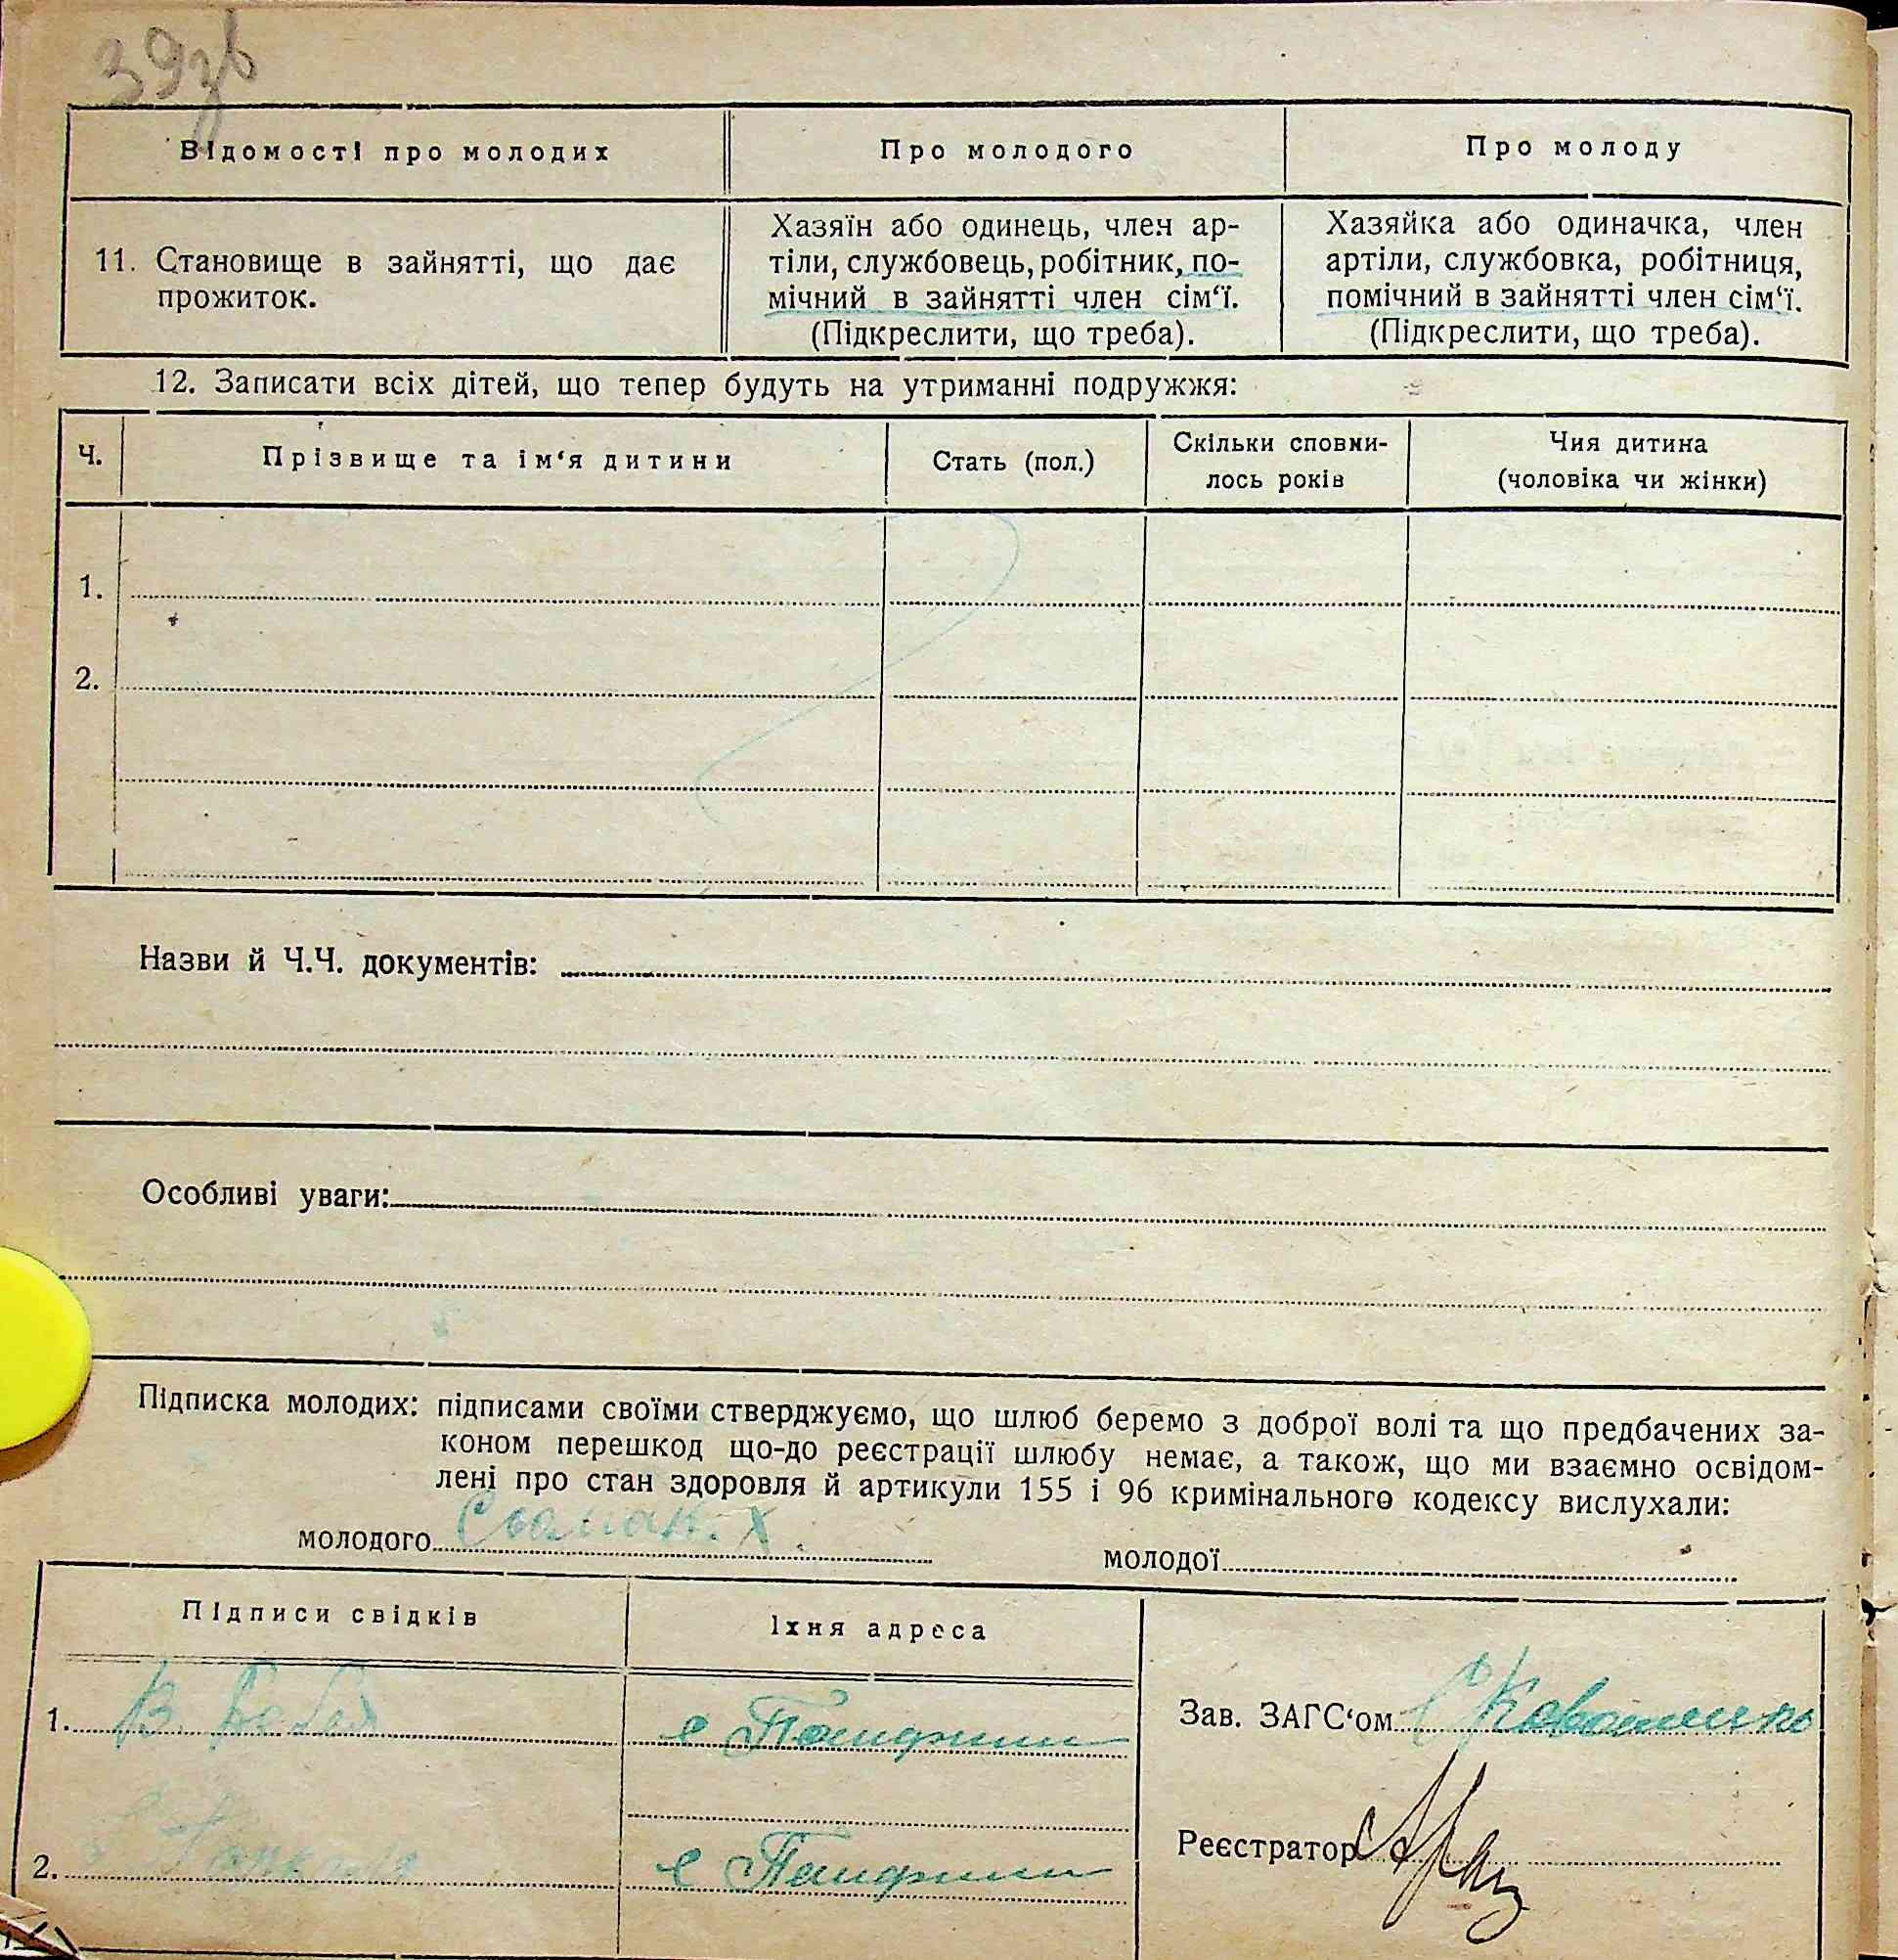 39зв
Відомості про молодих
Про молодого
Про молоду
11. Становище в зайнятті, що дає
прожиток.
Хазяїн або одинець, член ар-
тіли, службовець, робітник, по-
мічний в зайнятті член сім‘ї.
(Підкреслити, що треба).
Хазяйка або одиначка, член
артіли, службовка, робітниця,
помічний в зайнятті член сім‘ї.
(Підкреслити, що треба).
12. Записати всіх дітей, що тепер будуть на утриманні подружжя:
Ч.
Прізвище та ім‘я дитини
Стать (пол.)
Скільки сповни-
лось років
Чия дитина
(чоловіка чи жінки)
1.
2.
Назви й Ч.Ч. документів:
Особливі уваги:
Підписка молодих: підписами своїми стверджуємо, що шлюб беремо з доброї волі та що предбачених за-
коном перешкод що-до реєстрації шлюбу немає, а також, що ми взаємно освідом-
лені про стан здоровля й артикули 155 і 96 кримінального кодексу вислухали:
молодого
молодої
Підписи свідків
Їхня адреса
1. В.
с
Зав. ЗАГС‘ом
2.
с
Реєстратор